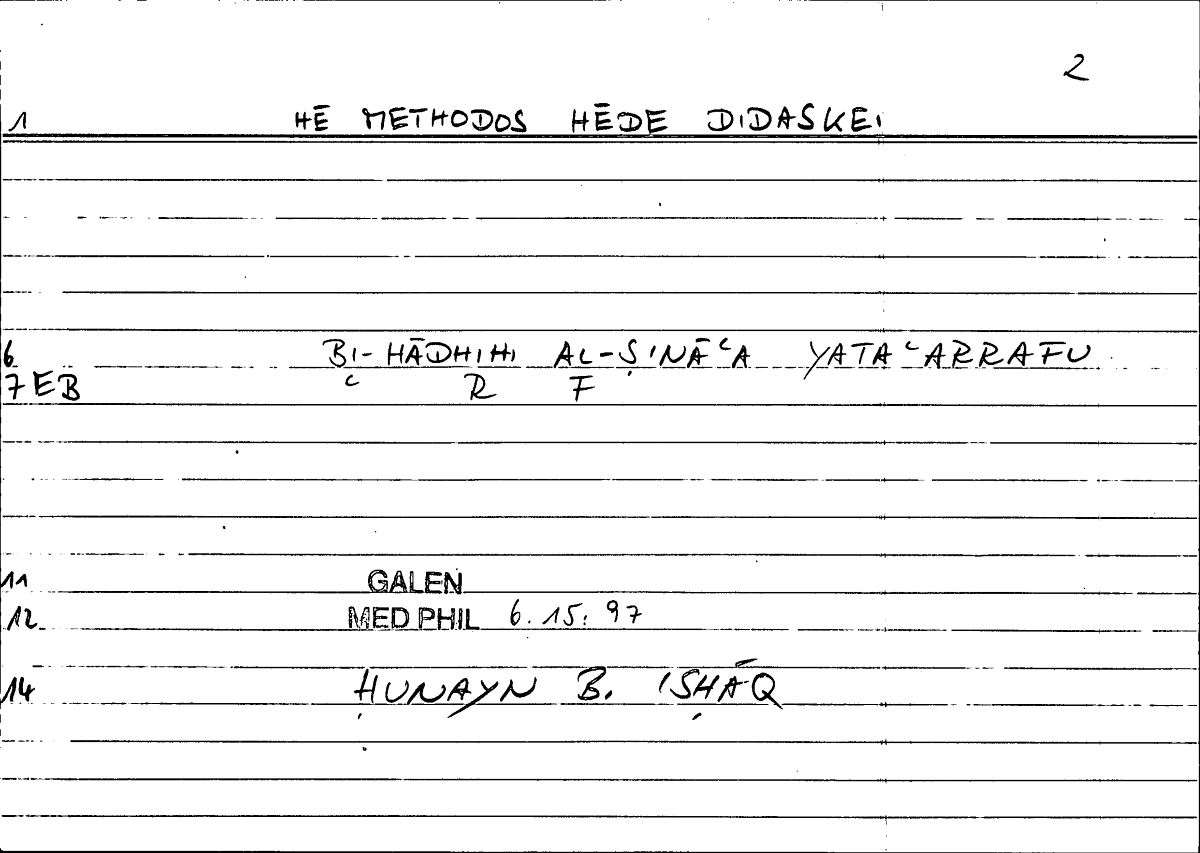 2
1 HĒ METHODOS HĒDE DIDASKEI
6 BI-HĀDHIHI AL-ṢINĀʿA YATAʿARRAFU
7EB ʿ R F
11 GALEN
12 MED PHIL 6.15:97
14 ḤUNAYN B. ISḤĀQ